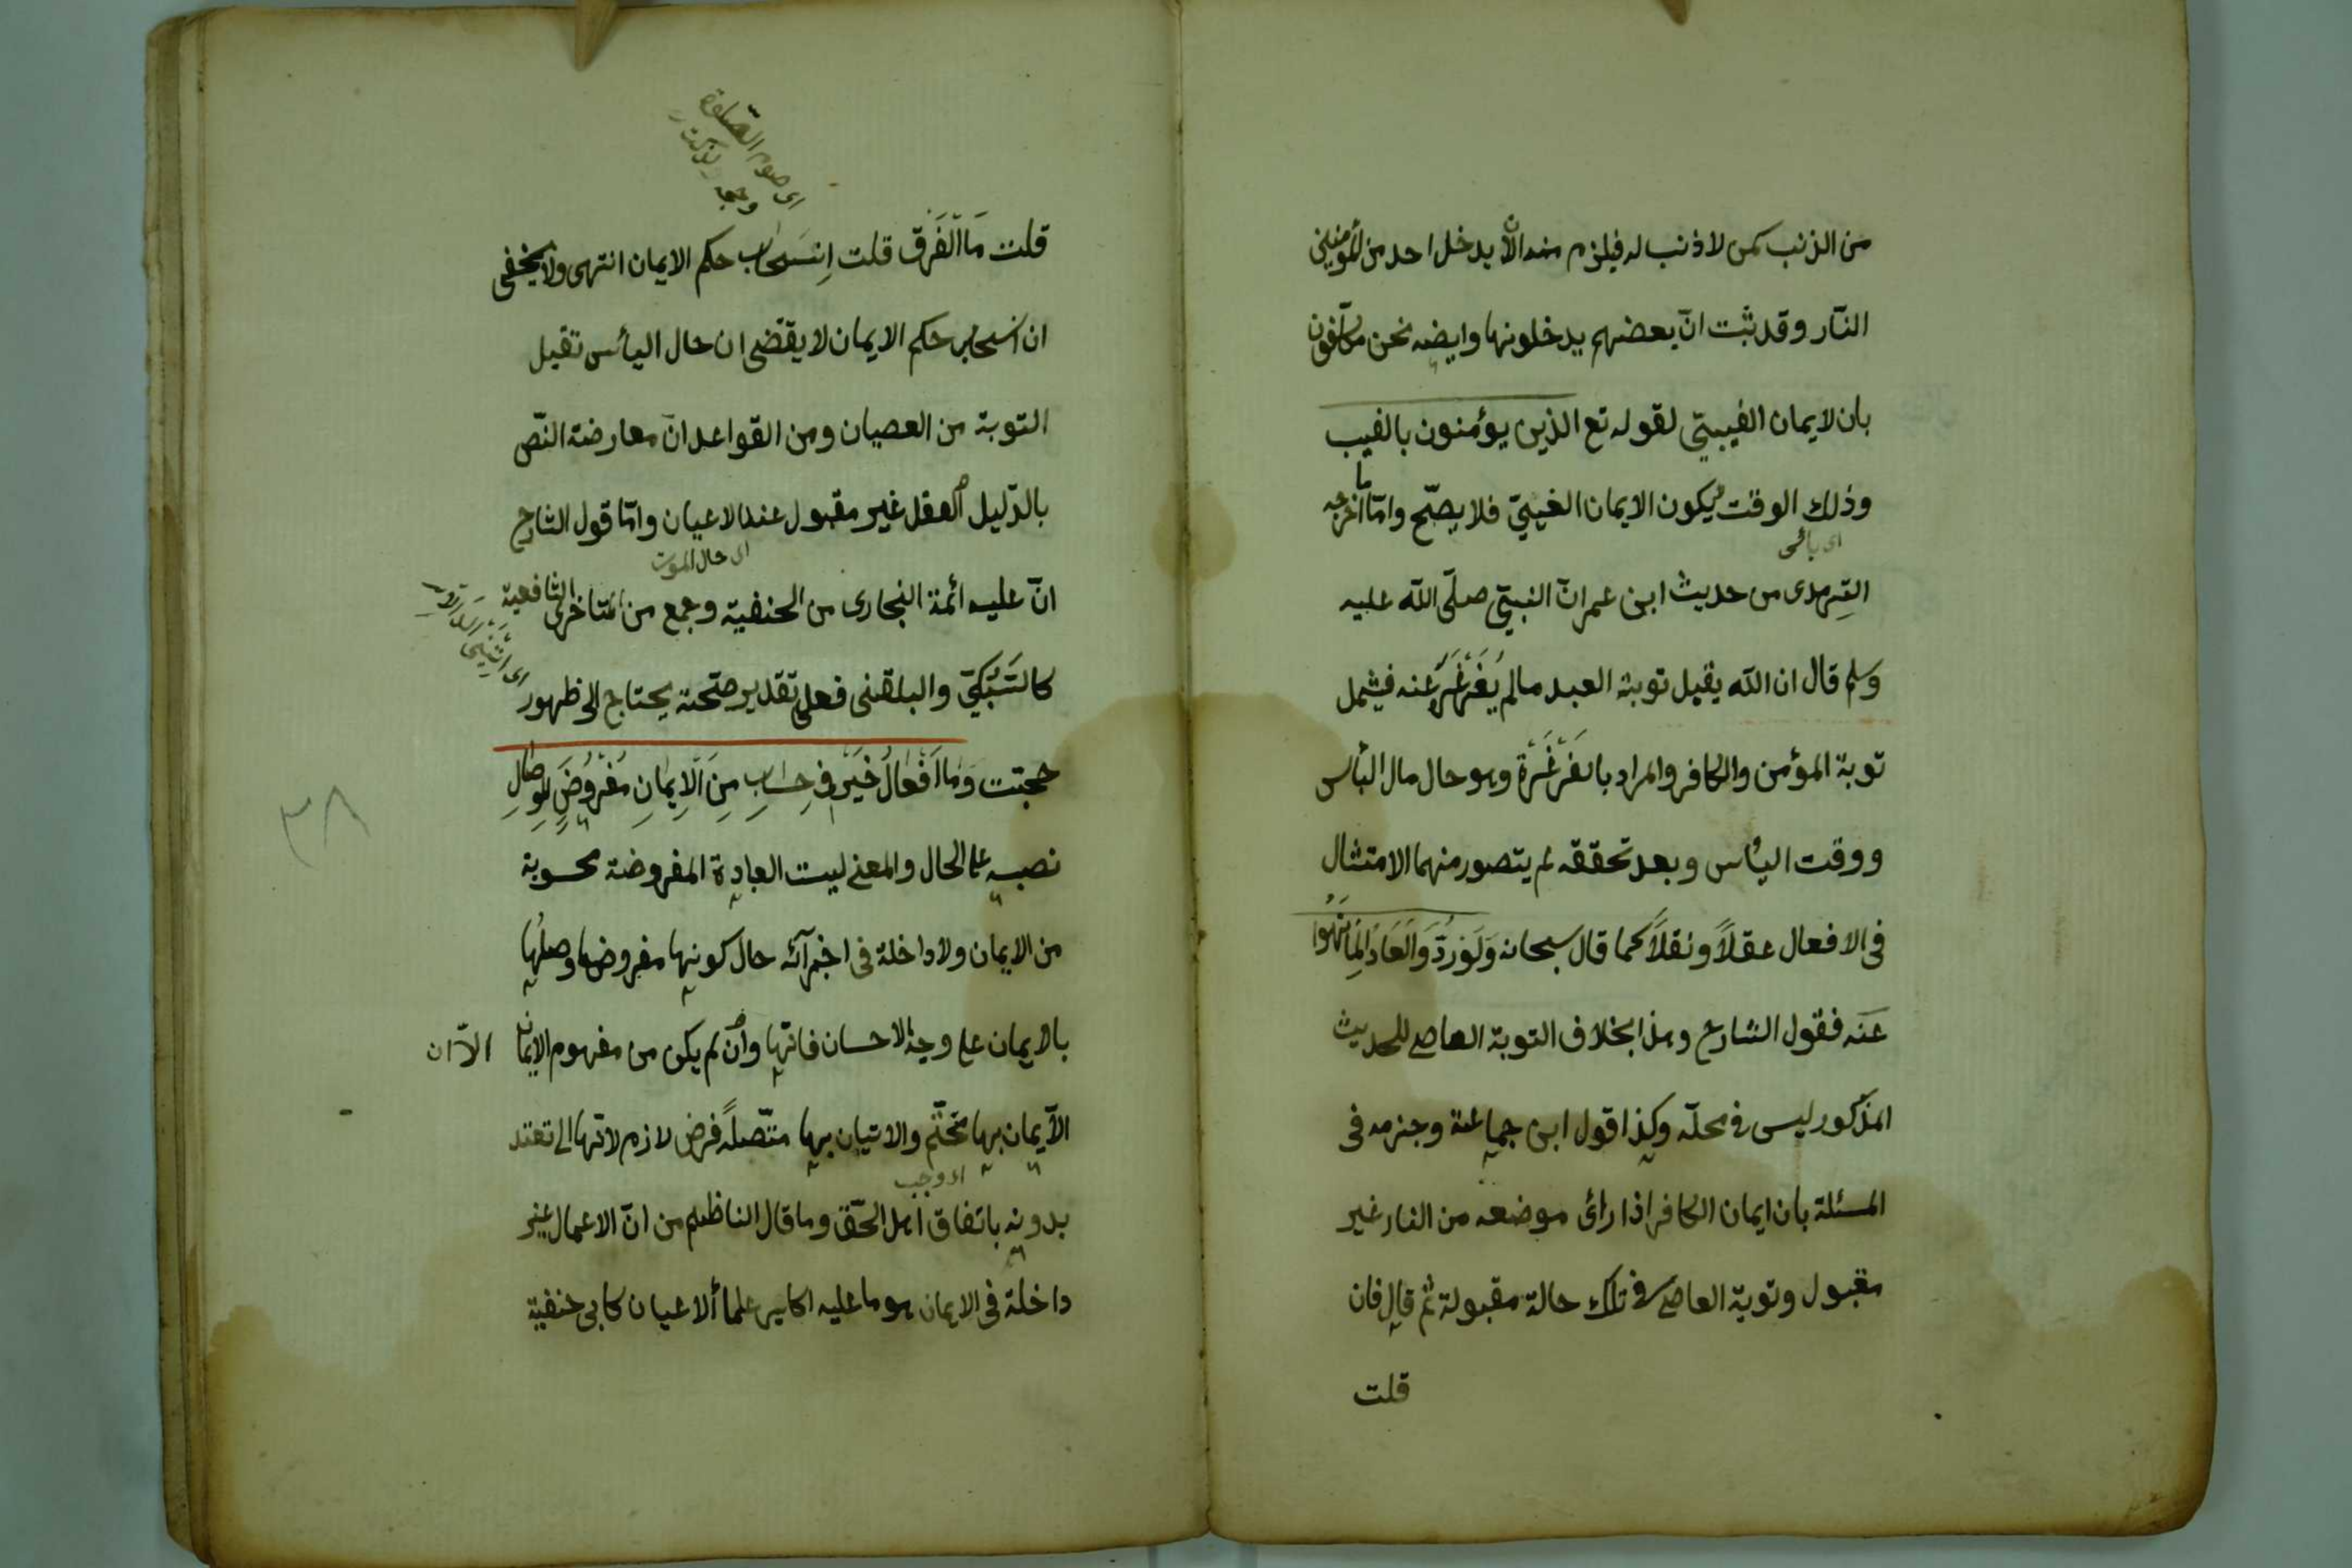 من الذنب كمن لا ذنب له فيلزم منه ان لا يدخل احد من المؤمنين
النّار وقد ثبت انّ بعضهم يدخلونها وايضه نحن مكلفون
بان لايمان الغيبيّ لقوله تع الذين يؤمنون بالغيب
وذلك الوقت ليكون الايمان الغيبيّ فلا يصحّ وامّا ما اخرجه
الترمدى من حديث ابن عمر انّ النبيّ صلّى الله عليه
وسلم قال ان الله يقبل توبة العبد مالم يُغَرْغِرْ عنه فيشمل
توبة المؤمن والكافر والمراد بالغَرْغَرَة وهو حال مال البأس
ووقت اليأس وبعد تحققه لم يتصور منهما الامتثال
فى الافعال عقلاً ونقلاً كما قال سبحانه وَلَوْ رُدّوا لَعَادُوا لِمَا نُهُوا
عَنْه فقول الشارح وهذا بخلاف التوبة العاصى للحديث
المذكور ليس فى محلّه وكذا قول ابن جماعة وجزمه فى
المسئلة بان ايمان الكافر اذا رأى موضعه من النار غير
مقبول وتوبة العاصى فى تلك حالة مقبولة ثم قال فان
قلت
اى صوم الصلوة
قلت مَا الْفَرْق قلت اِنْسَحَاب حكم الايمان انتهى ولا يخفى
ان انسحاب حكم الايمان لا يقتضى ان حال اليأس تقبل
التوبة من العصيان ومن القواعد انّ معارضة النّص
بالدّليل العقل غير مقبول عند الاعيان وامّا قول الشارح
اى حال الموت
انّ عليه ائمة البخارى من الحنفية وجمع من المتاخرى الشافعية
كالسّبْكِيّ والبلقنى فعلى تقدير صحّته يحتاج الى ظهور
حجّته وَمَا اَفْعَالُ خَيْرٍ فى حِسَابٍ مِنَ الْاِيمَانِ مَفْرُوضَ الْوِصَالِ
نصبه على الحال والمعنى ليست العبادة المفروضة محسوبة
من الايمان ولا داخلة فى اجزآئه حال كونها مفروضا وصلها
بالايمان على وجه الاحسان فانّها وان لم يكن من مفهوم الايمان
الاّ ان
الايمان بها تحتّم والاتيان بها متّصلةً فرض لازم لانّها لا تعتد
اى وجب
بدونه باتفاق اهل الحقّ وما قال الناظم من انّ الاعمال غير
داخلة فى الايمان هو ما عليه اكابر علماء الاعيان كابى حنفية
٣٨